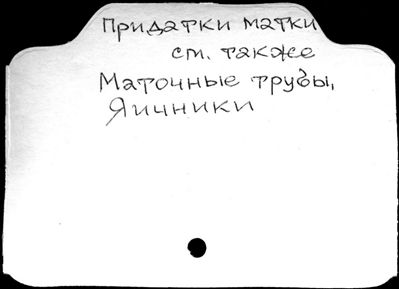 Придатки матки
см. также
Маточные трубы,
Яичники